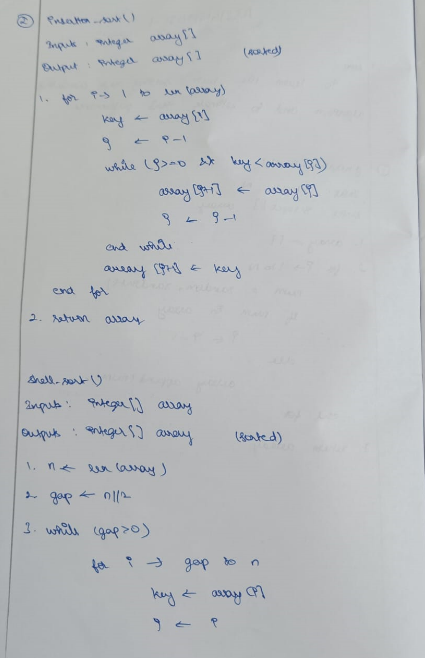 ② Insertion_sort()
Input : Integer array[]
Output : Integer array[] (sorted)
1. for i → 1 to len(array)
key ← array[i]
j ← i-1
while (j>=0 && key<array[j])
array[j+1] ← array[j]
j ← j-1
end while
array[j+1] ← key
end for
2. return array
shell_sort()
Input : Integer[] array
Output : Integer[] array (sorted)
1. n ← len(array)
2. gap ← n//2
3. while (gap>0)
for i → gap to n
key ← array[i]
j ← i